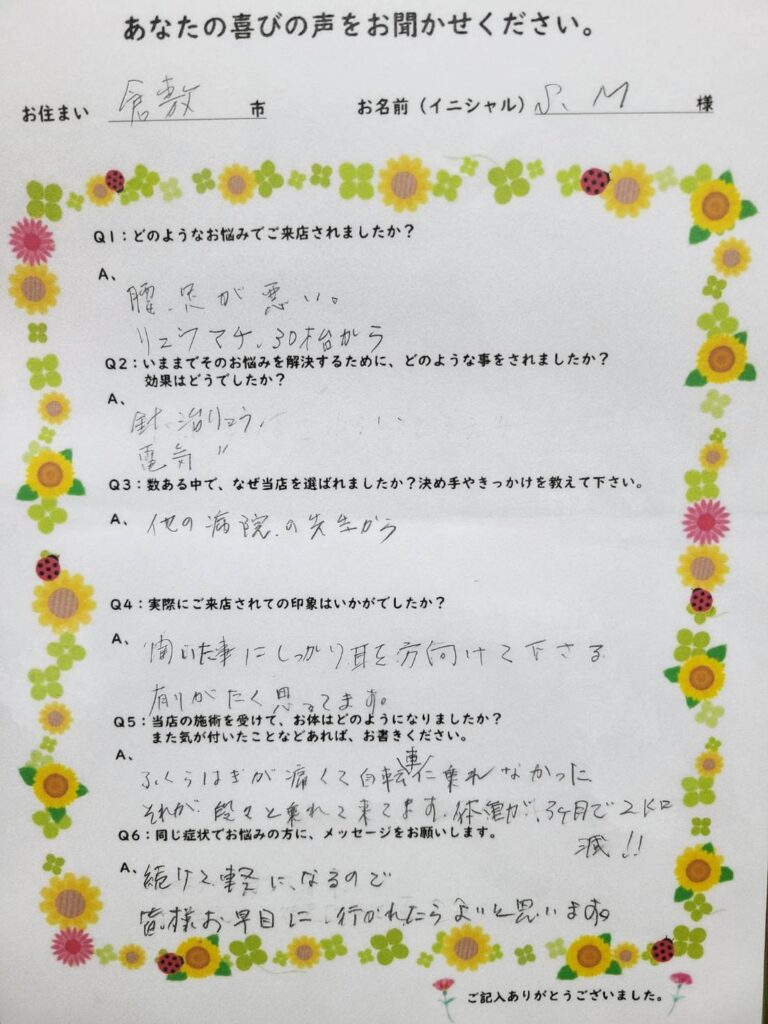 あなたの喜びの声をお聞かせください。
お住まい 倉敷 市 お名前（イニシャル） S. M 様
Q1：どのようなお悩みでご来店されましたか？
A、
腰、足が悪い。
リュウマチ、30才台から
Q2：いままでそのお悩みを解決するために、どのような事をされましたか？
効果はどうでしたか？
A、
針、治りょう、
電気 〃
Q3：数ある中で、なぜ当店を選ばれましたか？決め手やきっかけを教えて下さい。
A、他の病院の先生から
Q4：実際にご来店されての印象はいかがでしたか？
A、聞いた事にしっかり耳を方向けて下さる
有りがたく思ってます。
Q5：当店の施術を受けて、お体はどのようになりましたか？
また気が付いたことなどあれば、お書きください。
A、
ふくらはぎが痛くて自転車に乗れなかった
それが段々と乗れて来てます、体重が、3ヶ月で2キロ
減!!
Q6：同じ症状でお悩みの方に、メッセージをお願いします。
A、続けて軽に、なるので
皆様お早目に、行かれたらよいと思います。
ご記入ありがとうございました。